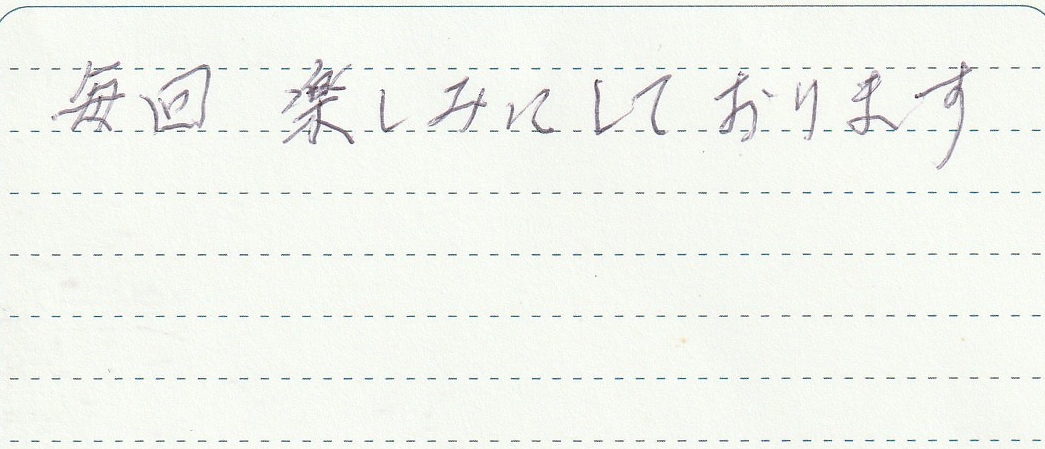 毎回 楽しみにしております